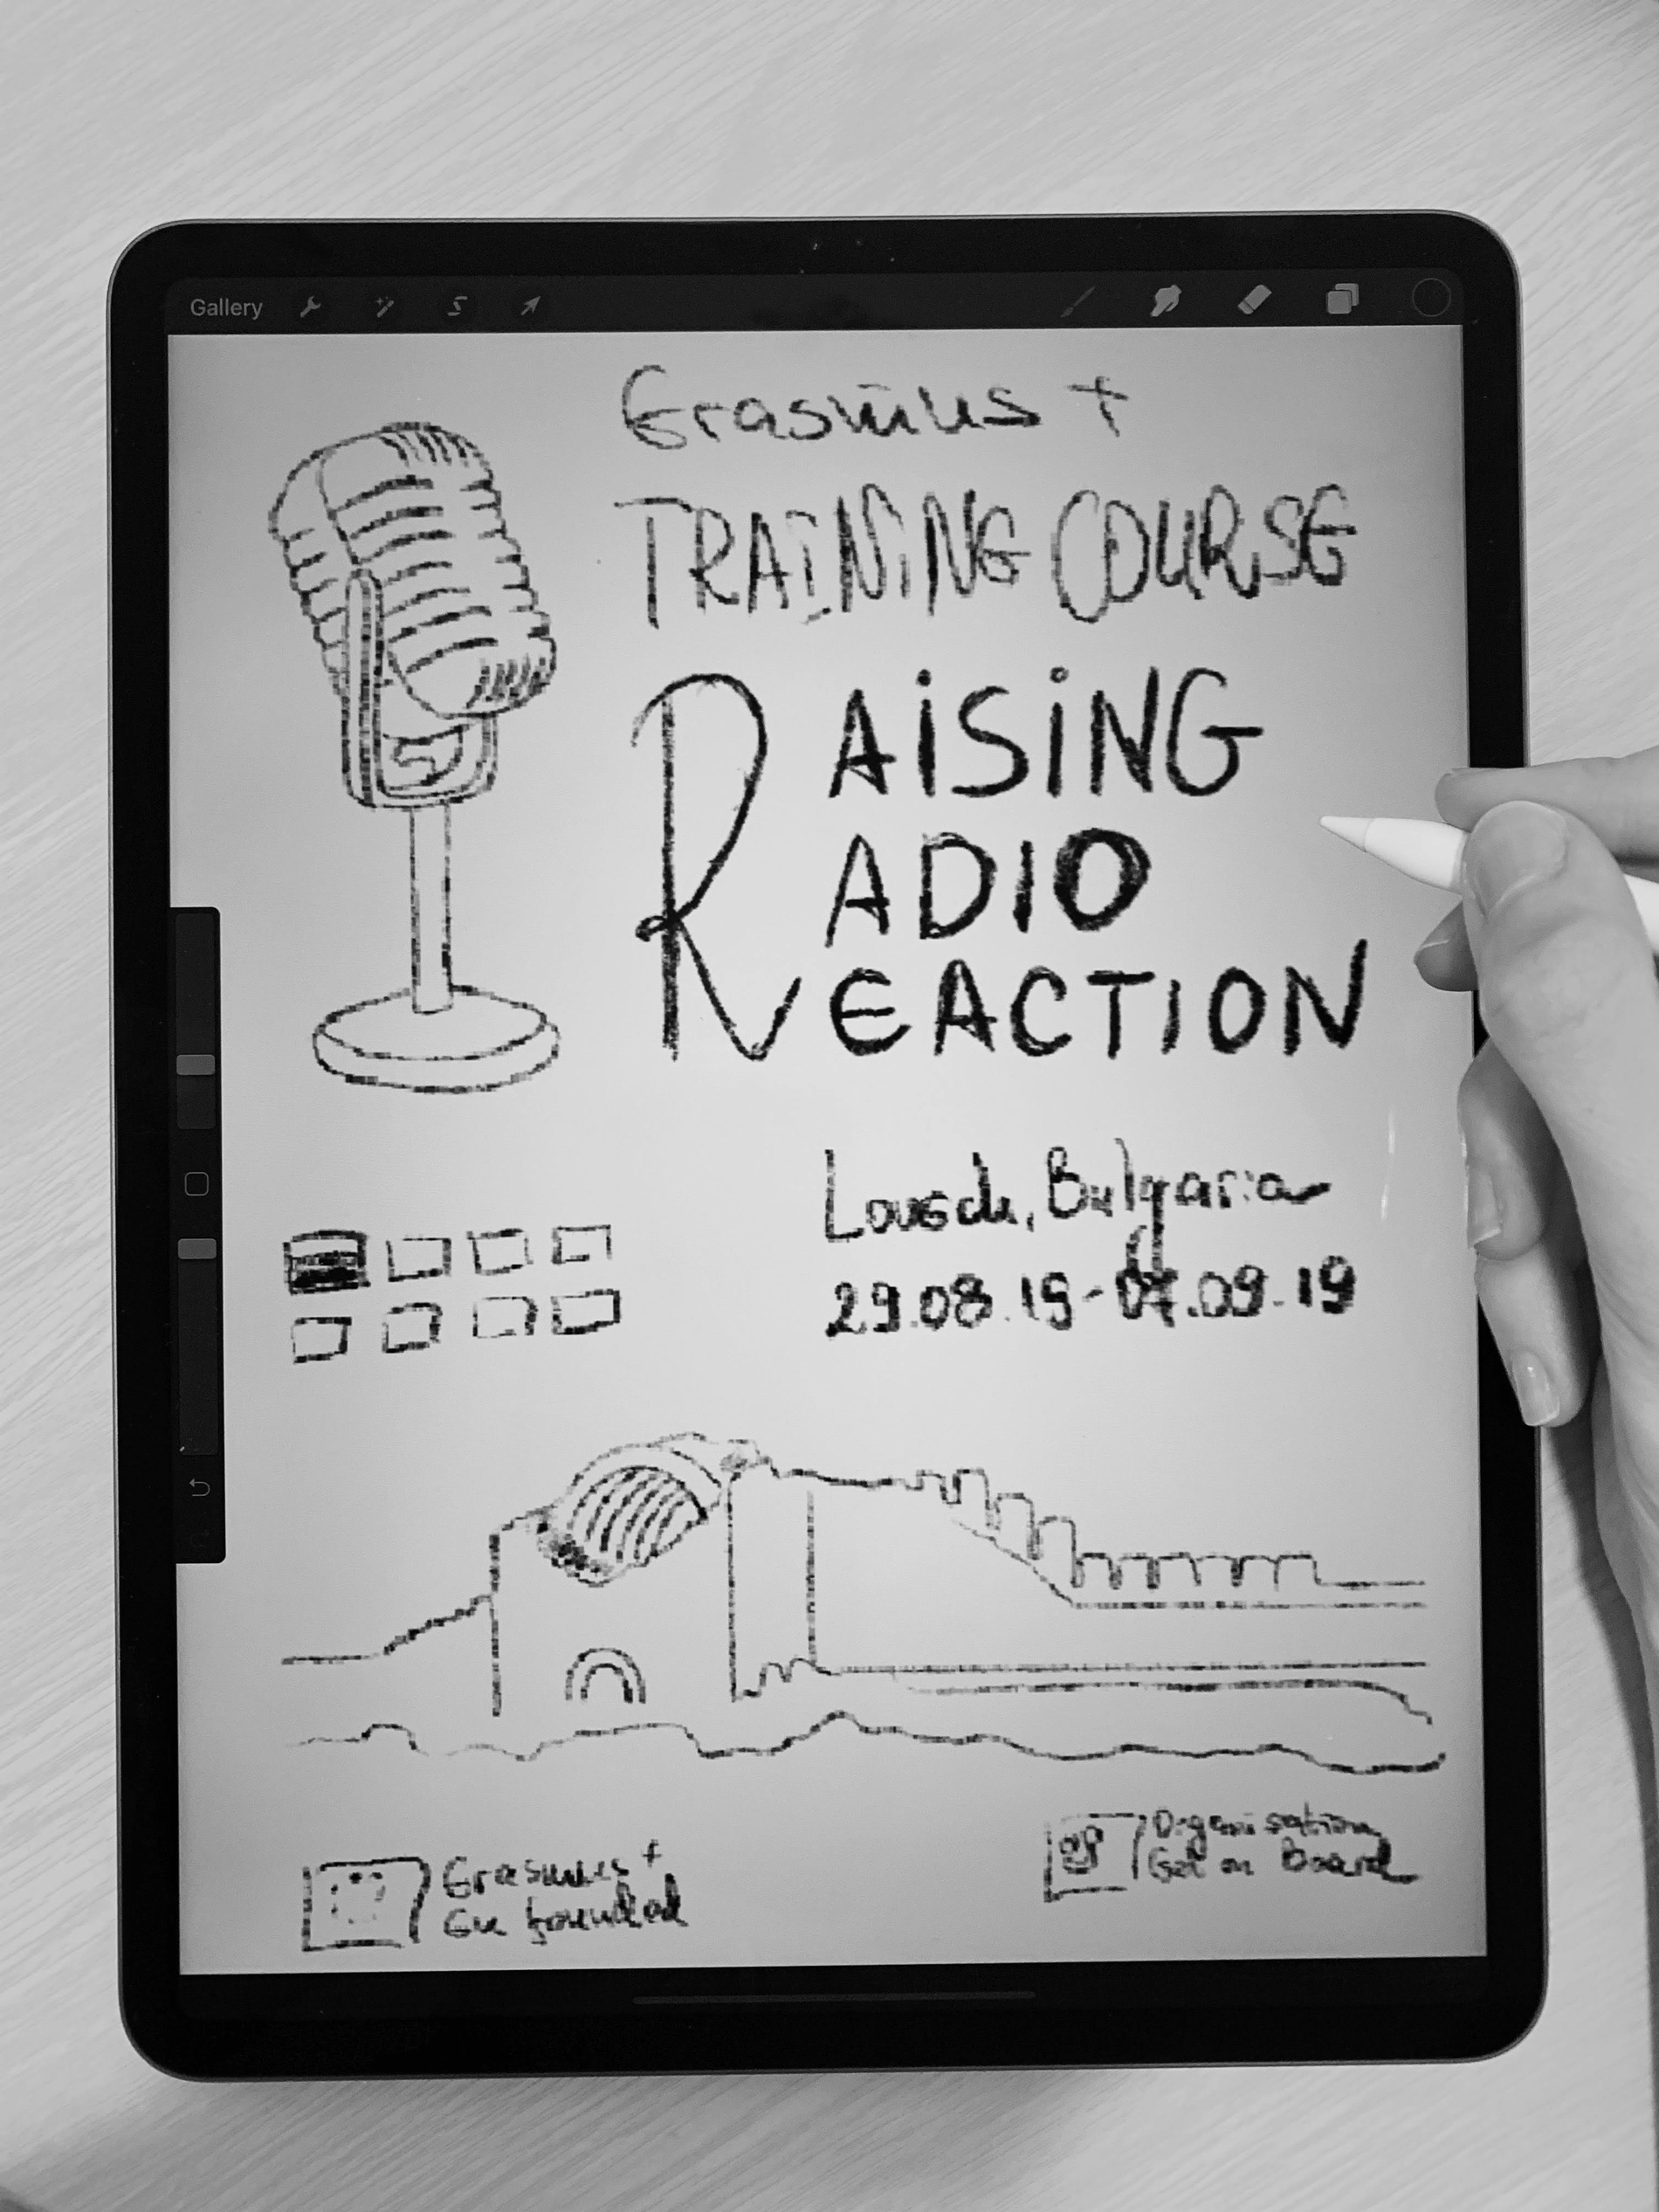 Gallery
Erasmus +
TRAiNiNG COURSE
RAiSiNG
RADIO
REACTION
Bulgaria
29.08.19-07.09.19
Erasmus +
Organisation
Get on Board